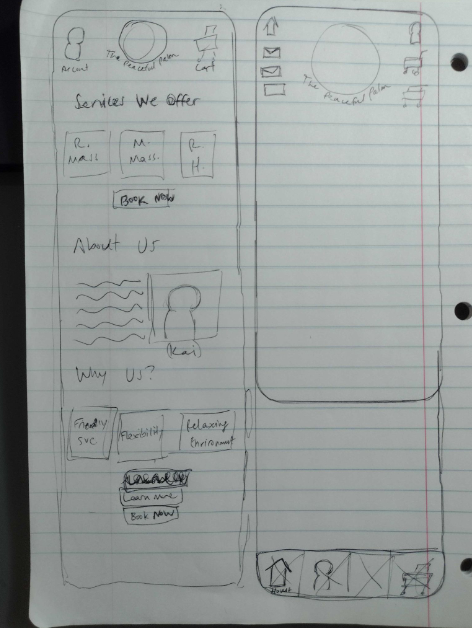 Account
The Peaceful Palm
Cart
Services We Offer
R.
Mass.
M.
Mass.
R.
H.
Book Now
About Us
(Kai)
Why Us?
Friendly
Svc
Flexibility
Relaxing
Environment
Learn more
Book Now
The Peaceful Palm